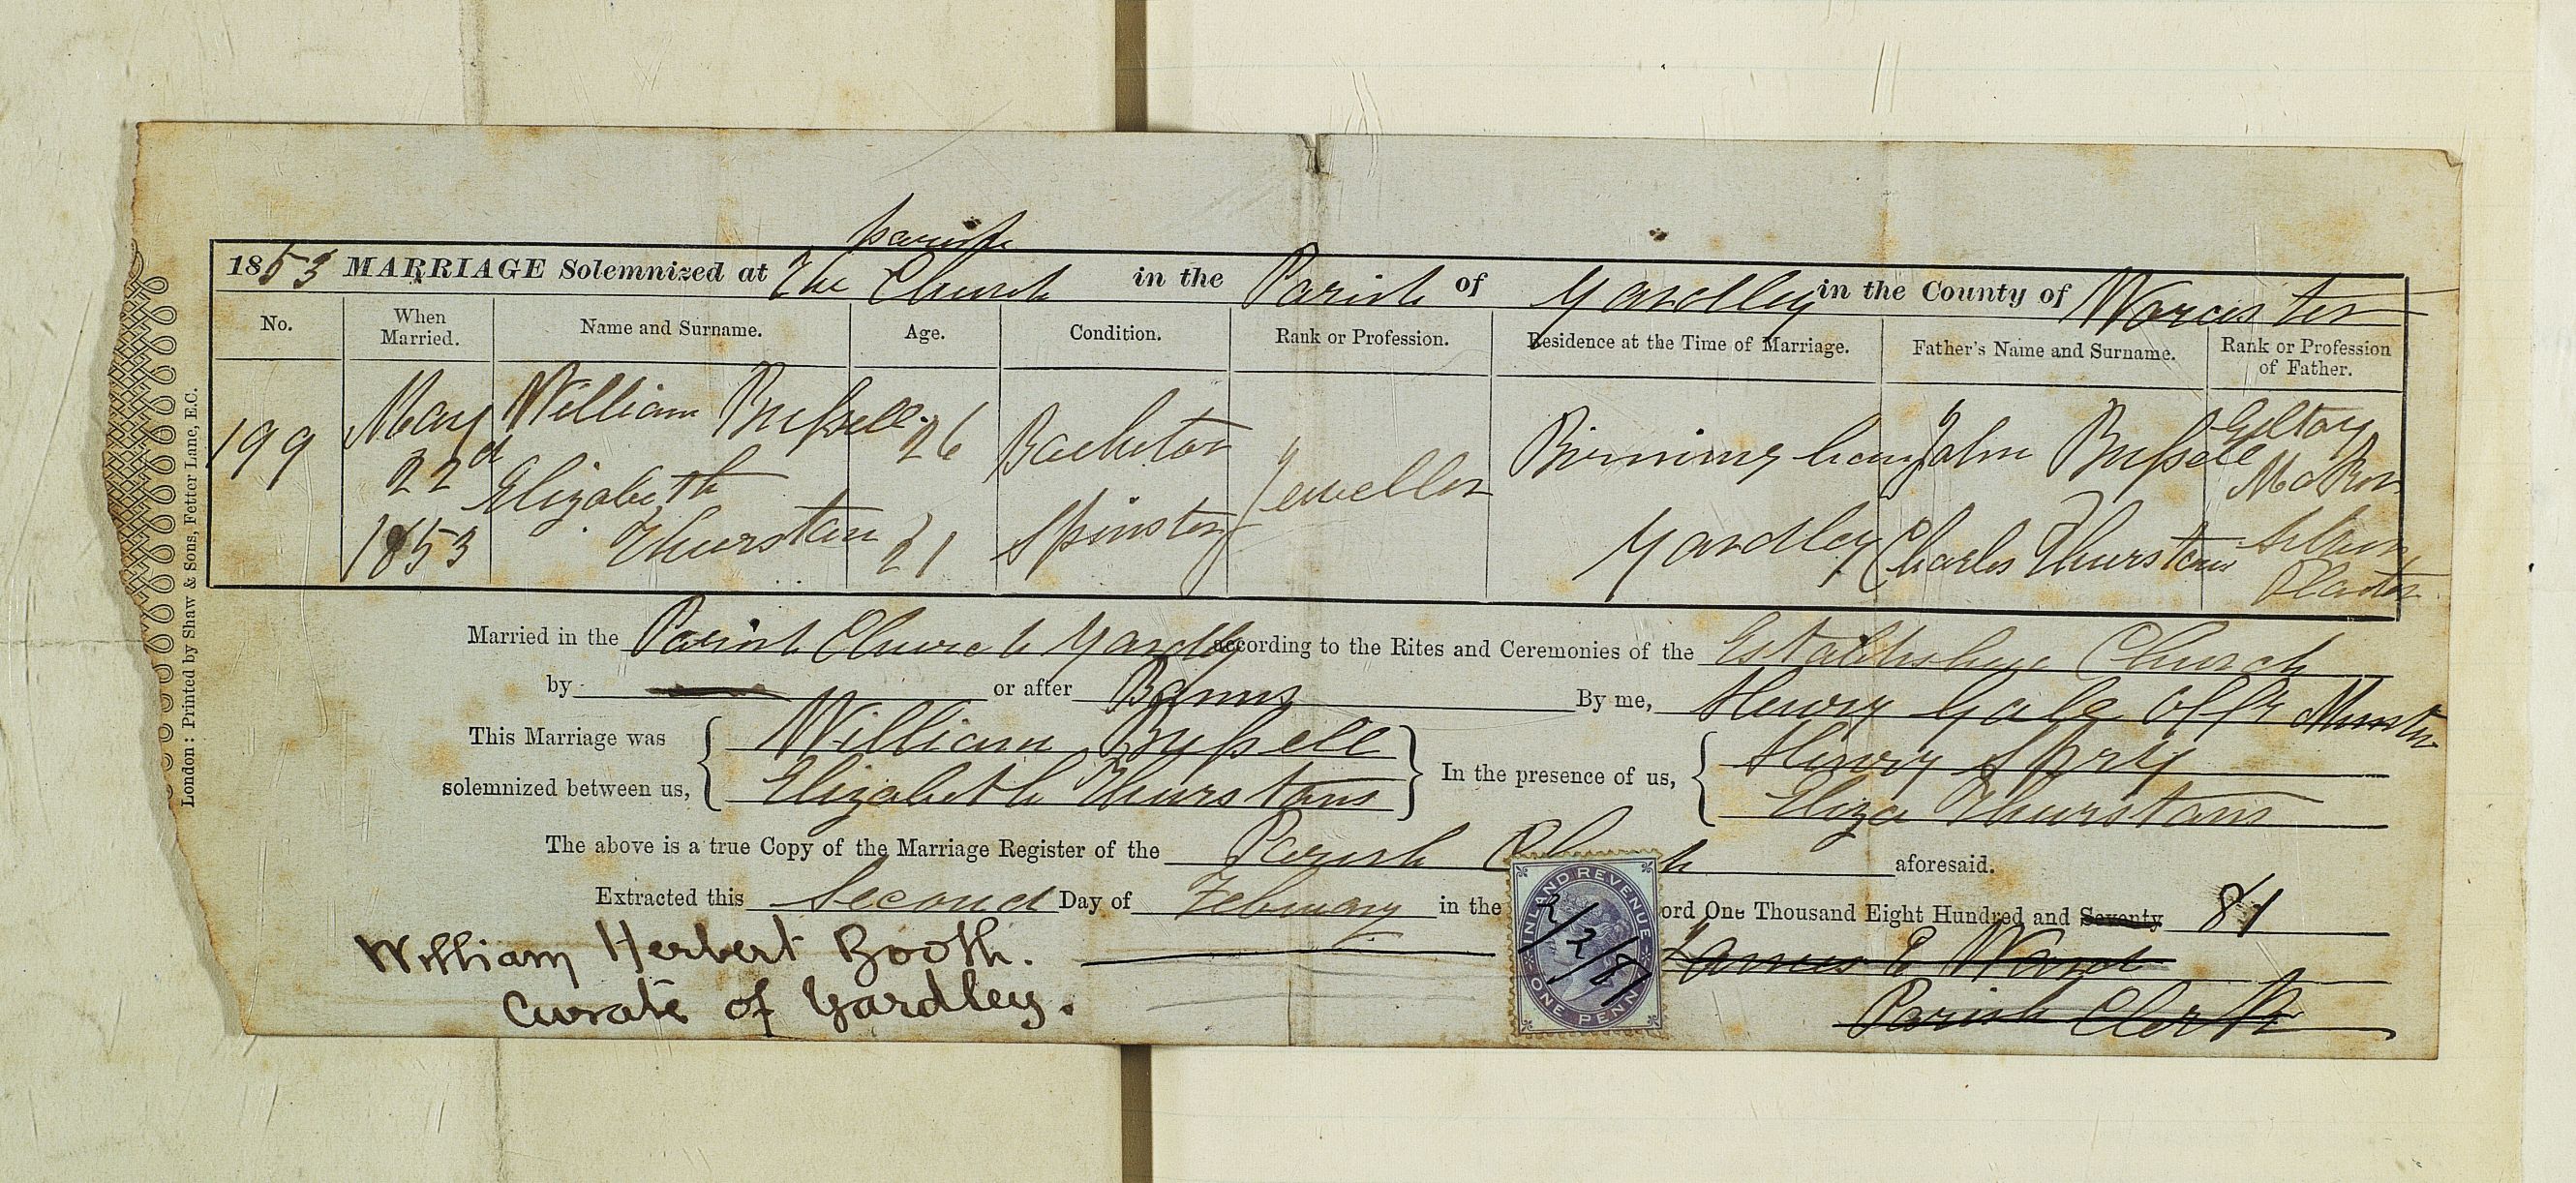 parish
1853 MARRIAGE Solemnized at The Church in the Parish of Yardley in the County of Worcester
No. When Married. Name and Surname. Age. Condition. Rank or Profession. Residence at the Time of Marriage. Father's Name and Surname. Rank or Profession of Father.
199 May 22d 1853 William Bussell 26 Bachelor Jeweller Birmingham John Bussell
Elizabeth Thurstan 21 Spinster Yardley Charles Thurstans Silver Plater
Married in the Parish Church Yardley according to the Rites and Ceremonies of the Church
by or after Banns By me, Henry Gale Offg Minster
This Marriage was solemnized between us, William Bussell In the presence of us, Henry Spry
Elizabeth Thurstans Eliza Thurstans
The above is a true Copy of the Marriage Register of the Parish Church aforesaid.
Extracted this Second Day of February in the ord One Thousand Eight Hundred and Seventy 81
William Herbert Booth.
Curate of Yardley.
James E Ward
Parish Clerk
INLAND REVENUE
ONE PENNY
2/2/81
London: Printed by Shaw & Sons, Fetter Lane, E.C.